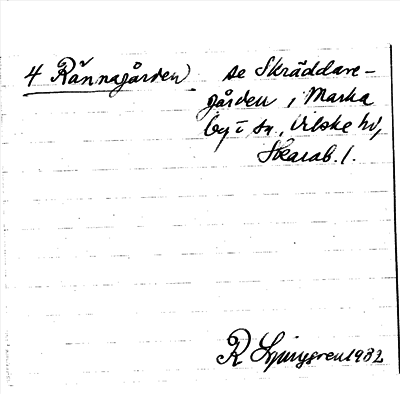 4 Rännagården se Skräddare-
gården i Marka
by o sn, Vilske hd,
Skarab. l.
R Ljunggren 1982